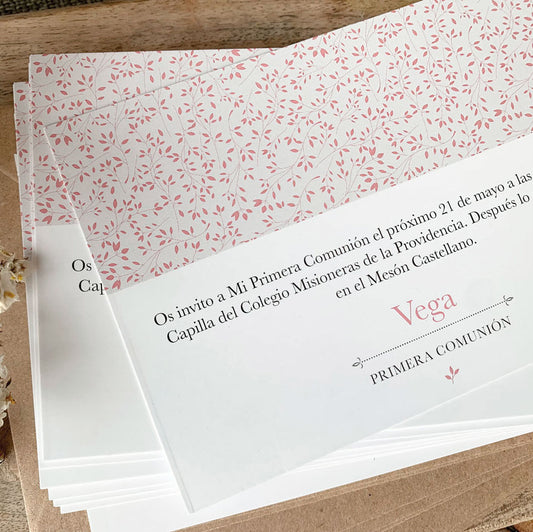 Os invito a Mi Primera Comunión el próximo 21 de mayo a las
Capilla del Colegio Misioneras de la Providencia. Después lo
en el Mesón Castellano.
Vega
PRIMERA COMUNIÓN
Os
Cap